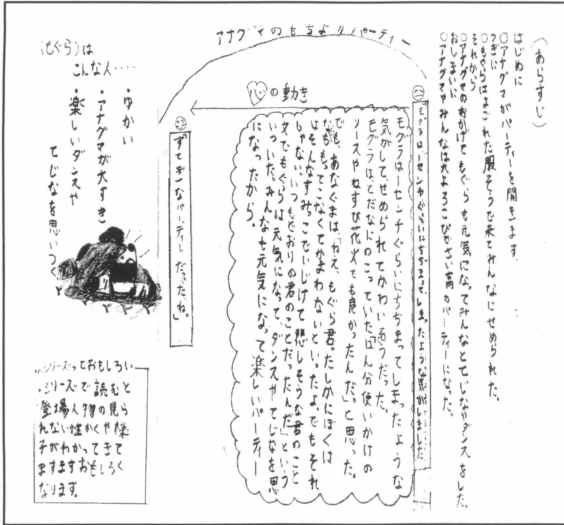 (あらすじ)
はじめに
○アナグマがパーティーを開きます。
つぎに
○もぐらはよごれた服そうで来てみんなにせめられた。
それから
○アナグマのおかげでもぐらも元気になってみんなとてじなやダンスをした。
おしまいに
○アナグマやみんなは大よろこびでさい高のパーティーになった。
アナグマのもちよりパーティー
心の動き
モグラは一センチぐらいにちぢまってしまったような気がしました
モグラは一センチぐらいにちぢまってしまったような
気がして、せめられてかわいそうだった。
モグラは、とだなにのこっていた「はん分使いかけの
ソースやねずび花火でも良かったんだ。」と思った。
でも、あなぐまは、「ねえ、もぐら君。たしかにぼくは
なにももってこなくてかまわないといったよ。でもそれ
はそんなすみっこでいじけて悲しそうな君のこと
じゃない。いつもどおりの君のことだったんだ」という
文でもぐらは元気になって、ダンスやてじなを思
いついた。みんなも元気になって楽しいパーティー
になったから。
「すてきなパーティーだったね。」
(もぐら)は
こんな人‥‥
・ゆかい
・アナグマが大すき
・楽しいダンスや
てじなを思いつく
シリーズっておもしろい
・シリーズで読むと
登場人物の見ら
れない性かくや様
子がわかってきて
ますますおもしろく
なります。